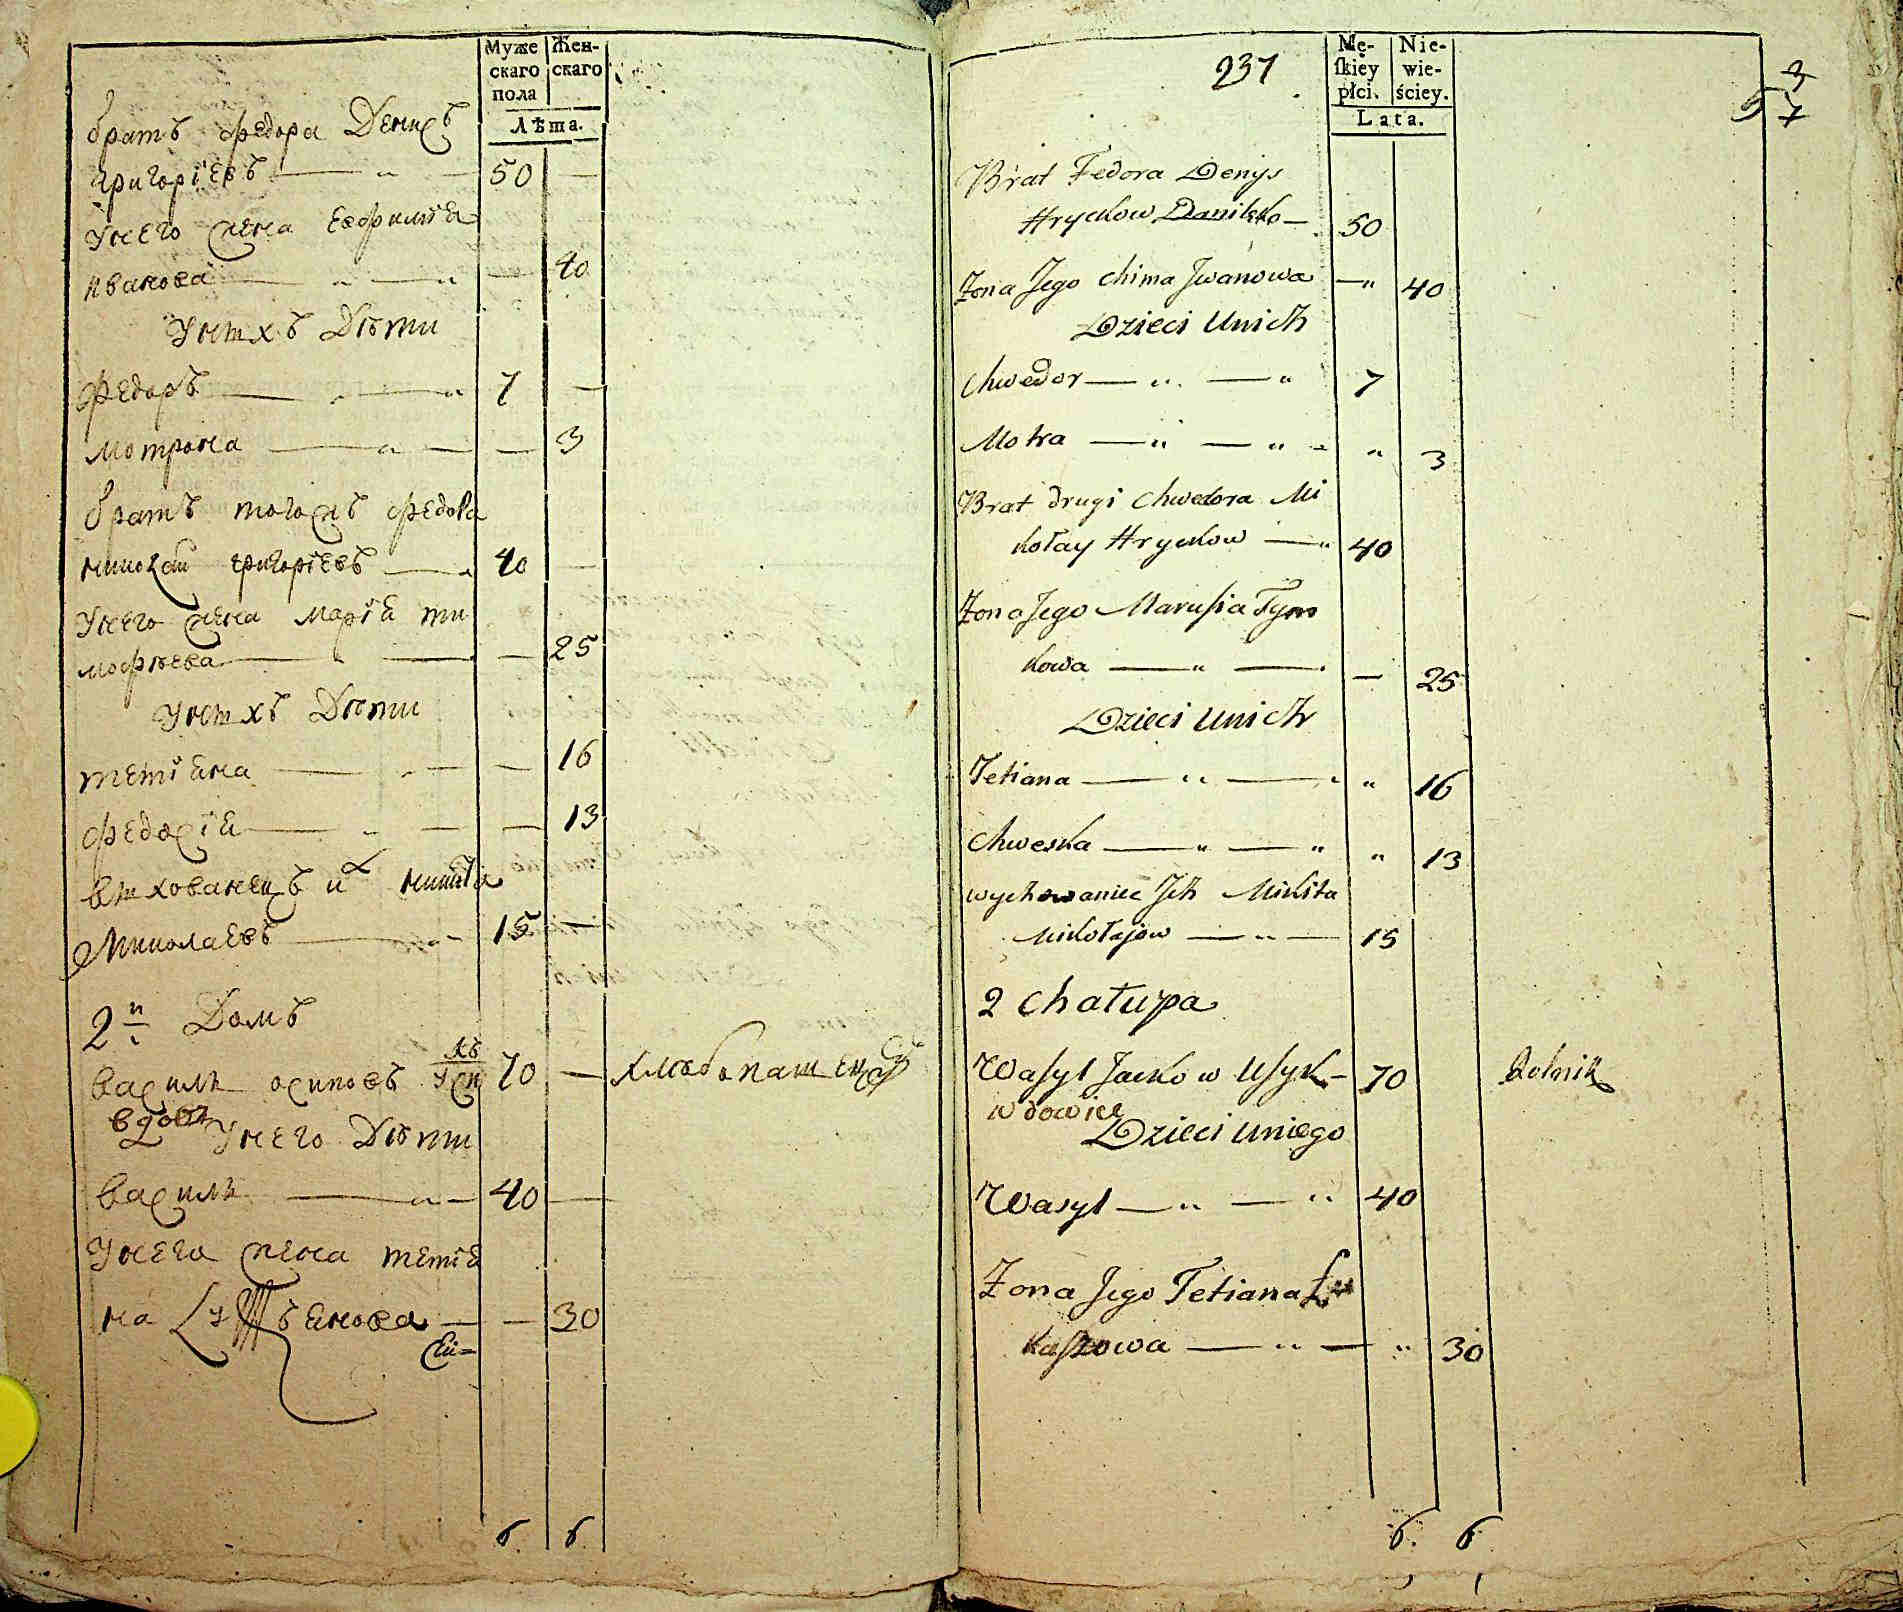 Муже
скаго
пола
Жен-
скаго
Лѣта.
братъ федора Денисъ
григоріевъ — 50 —
унего жена евфимія
иванова — — 40
унихъ Дѣти
Федоръ — 7 —
мотрона — — 3
братъ тогожъ федора
николай григоріевъ — 40 —
унего жена марія ти
мофѣева — — 25
унихъ Дѣти
тетіяна — — 16
федосія — — 13
вихованецъ их никита
Миколаевъ — 15 —
2й Домъ
василь осиповъ 70 — хлебопашецъ
вдовъ унего Дѣти
василь — 40 —
унего жена тетія
на — 30
6 6
237
Mę-
skiéy
płci.
Nie-
wie-
ściey.
Lata.
3
5 7
Brat Fedora Denys
Hryckow Danilko — 50
Żona Jego Chima Jwanowa — 40
Dzieci Unich
Chwedor — 7
Motra — 3
Brat drugi Chwedora Mi
kołay Hryckow — 40
Żona Jego Marusia Tym
kowa — — 25
Dzieci Unich
Tetiana — 16
Chweska — 13
wychowaniec Jch Mikita
Mikołajow — 15
2 Chałupa
Wasyl Jackow Usyk — 70 Rolnik
wdowiec
Dzieci Uniego
Wasyl — 40
Żona Jego Tetiana Łu
kaszowa — 30
6. 6